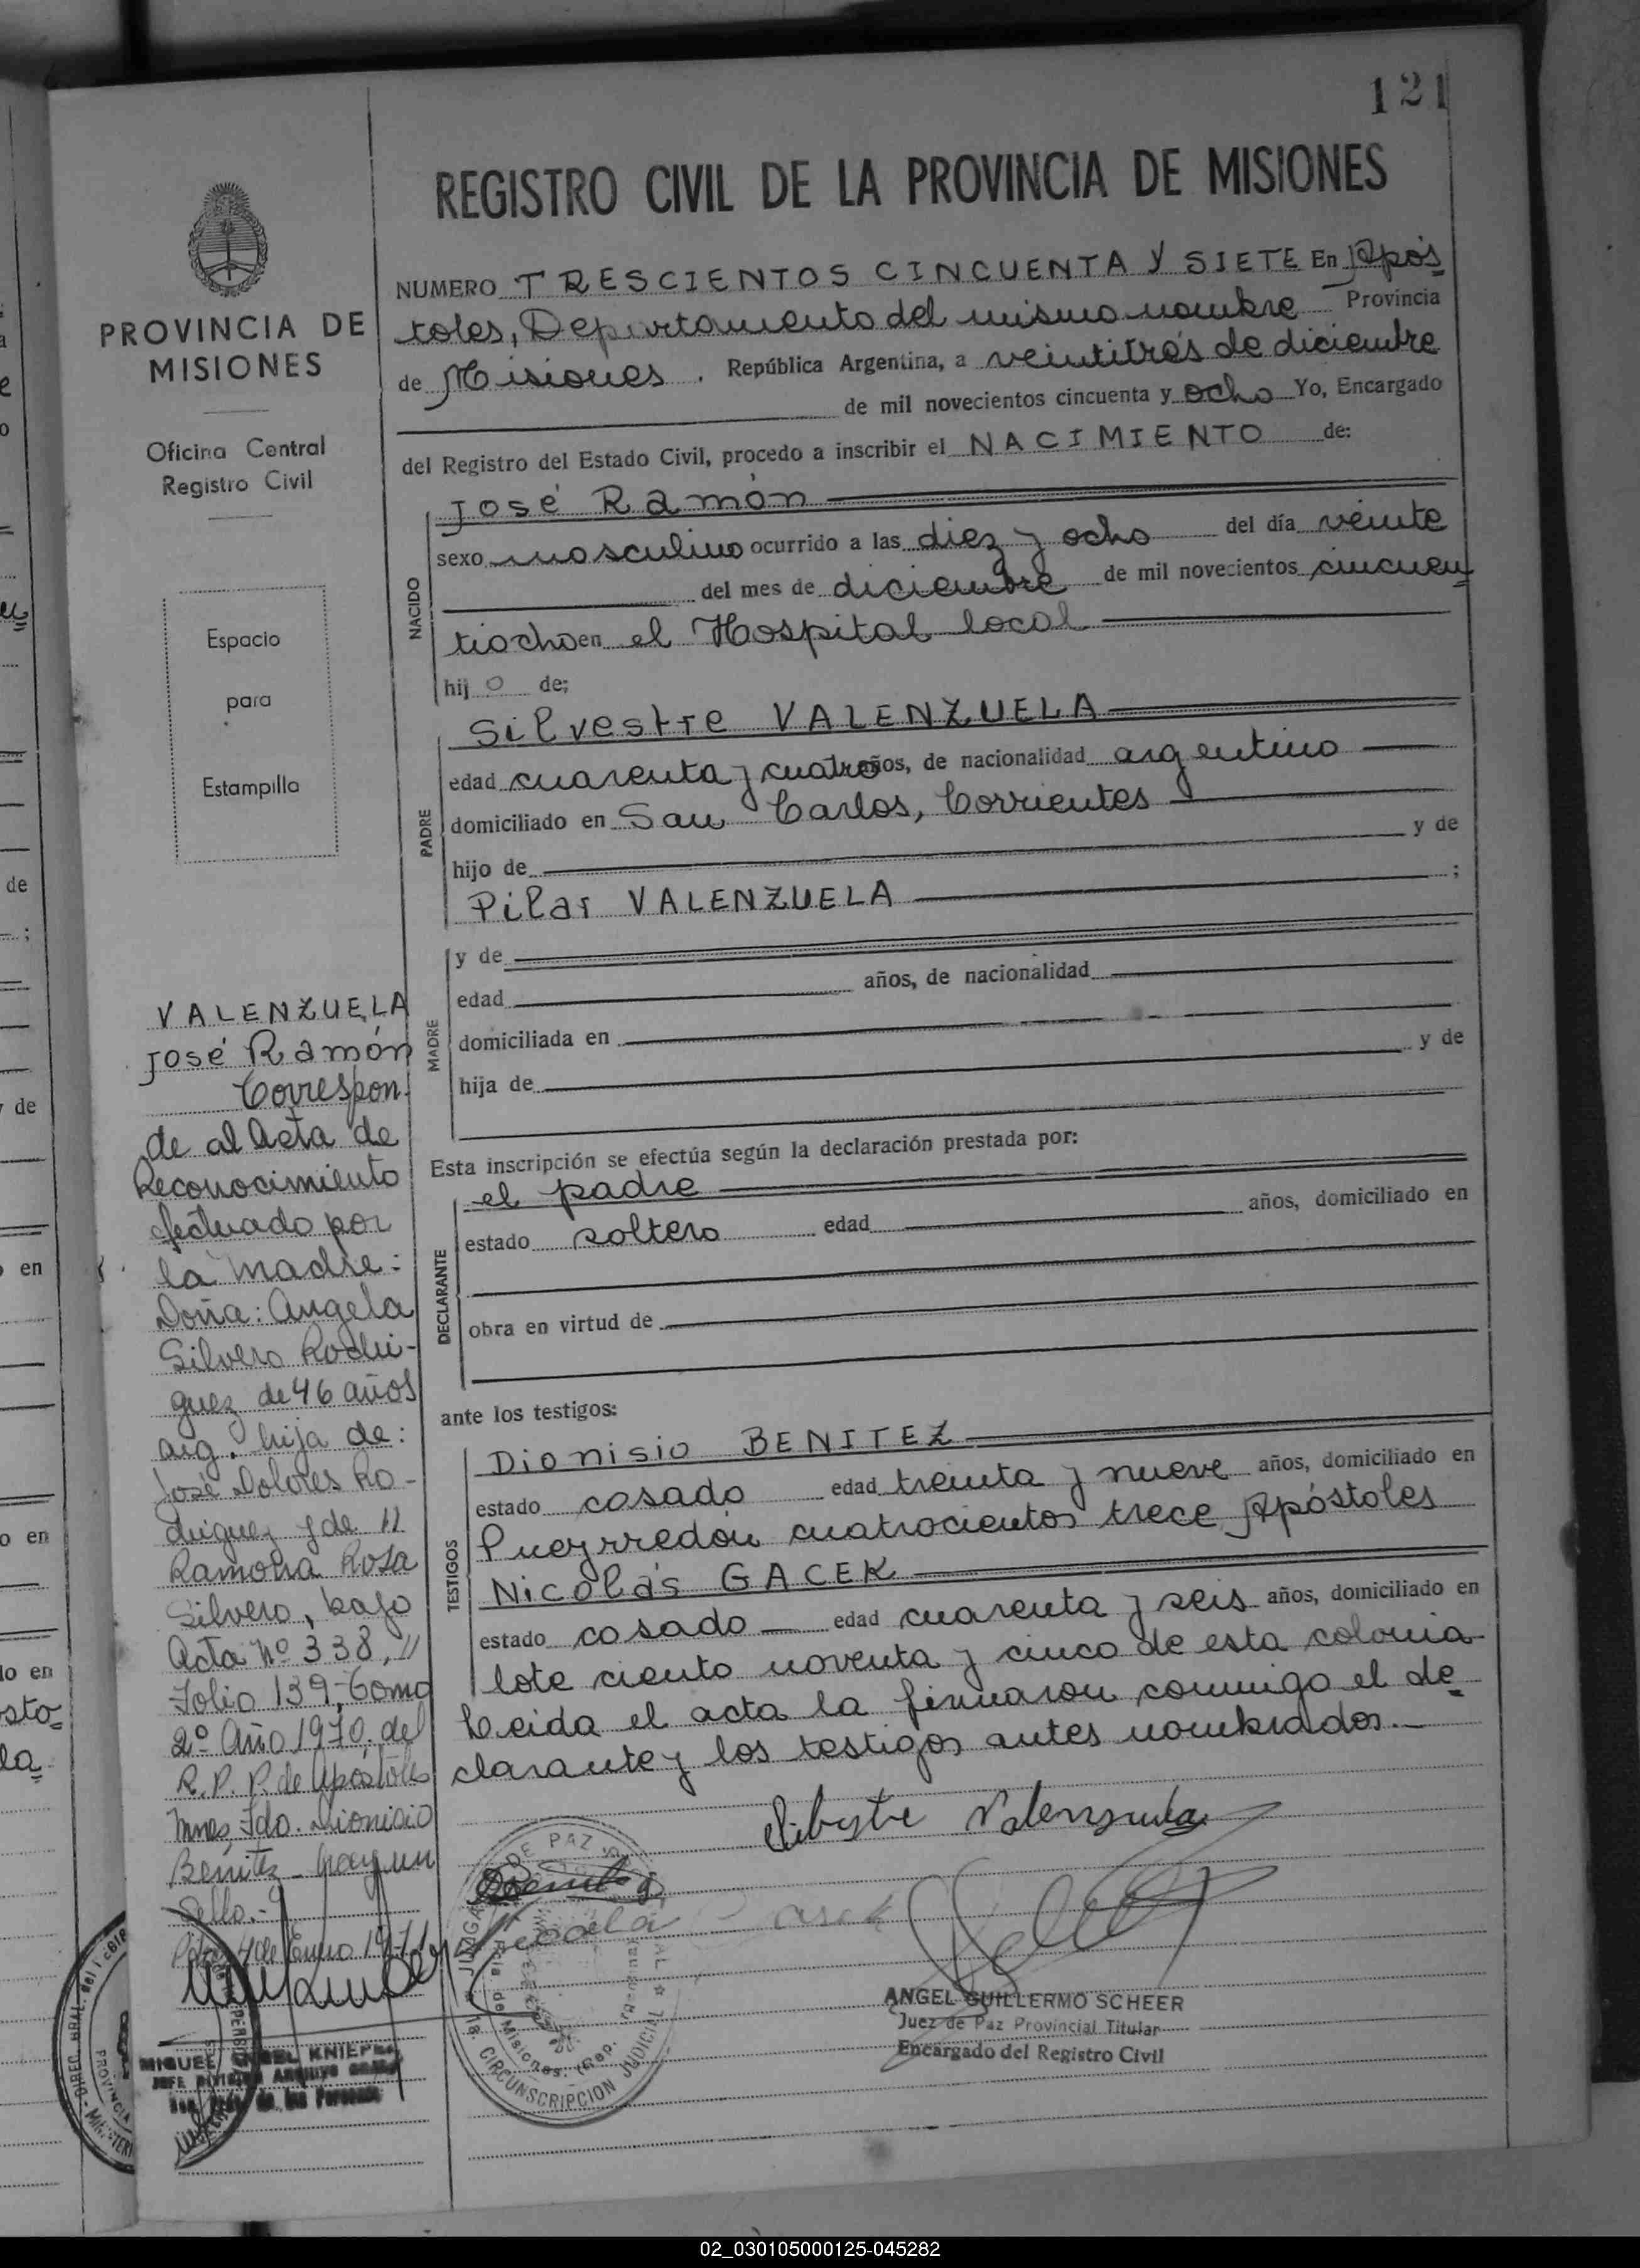 121
REGISTRO CIVIL DE LA PROVINCIA DE MISIONES
PROVINCIA DE
MISIONES
Oficina Central
Registro Civil
Espacio
para
Estampilla
NUMERO TRESCIENTOS CINCUENTA Y SIETE En Após
toles, Departamento del mismo nombre Provincia
de Misiones. República Argentina, a veintitrés de diciembre
de mil novecientos cincuenta y ocho Yo, Encargado
del Registro del Estado Civil, procedo a inscribir el NACIMIENTO de:
NACIDO
José Ramón
sexo masculino ocurrido a las diez y ocho del día veinte
del mes de diciembre de mil novecientos cincuen
tiocho en el Hospital local
hijo de;
PADRE
Silvestre VALENZUELA
edad cuarenta y cuatro años, de nacionalidad argentino
domiciliado en San Carlos, Corrientes
hijo de y de
Pilar VALENZUELA ;
MADRE
y de
edad años, de nacionalidad
domiciliada en
hija de y de
Esta inscripción se efectúa según la declaración prestada por:
DECLARANTE
el padre
estado soltero edad años, domiciliado en
obra en virtud de
ante los testigos:
TESTIGOS
Dionisio BENITEZ
estado casado edad treinta y nueve años, domiciliado en
Pueyrredón cuatrocientos trece Apóstoles
Nicolás GACEK
estado casado edad cuarenta y seis años, domiciliado en
lote ciento noventa y cinco de esta colonia
Leida el acta la firmaron conmigo el de
clarante y los testigos antes nombrados.-
Silvestre Valenzuela
ANGEL GUILLERMO SCHEER
Juez de Paz Provincial Titular
Encargado del Registro Civil
CIRCUNSCRIPCION JUDICIAL
VALENZUELA
José Ramón
Correspon-
de al Acta de
Reconocimiento
efectuado por
la madre:
Doña: Angela
Silvero Rodri-
guez de 46 años
arg. hija de:
José Dolores Ro-
driguez y de //
Ramona Rosa
Silvero, bajo
Acta Nº 338, //
Folio 139, Tomo
2º Año 1970, del
R. P. P. de Apóstoles
Mnes, Fdo. Dionisio
Benítez - Hay un
Sello.-
4 de Enero 1971
MIGUEL ANGEL KNIEF
JEFE DIVISION ARCHIVO
02_030105000125-045282